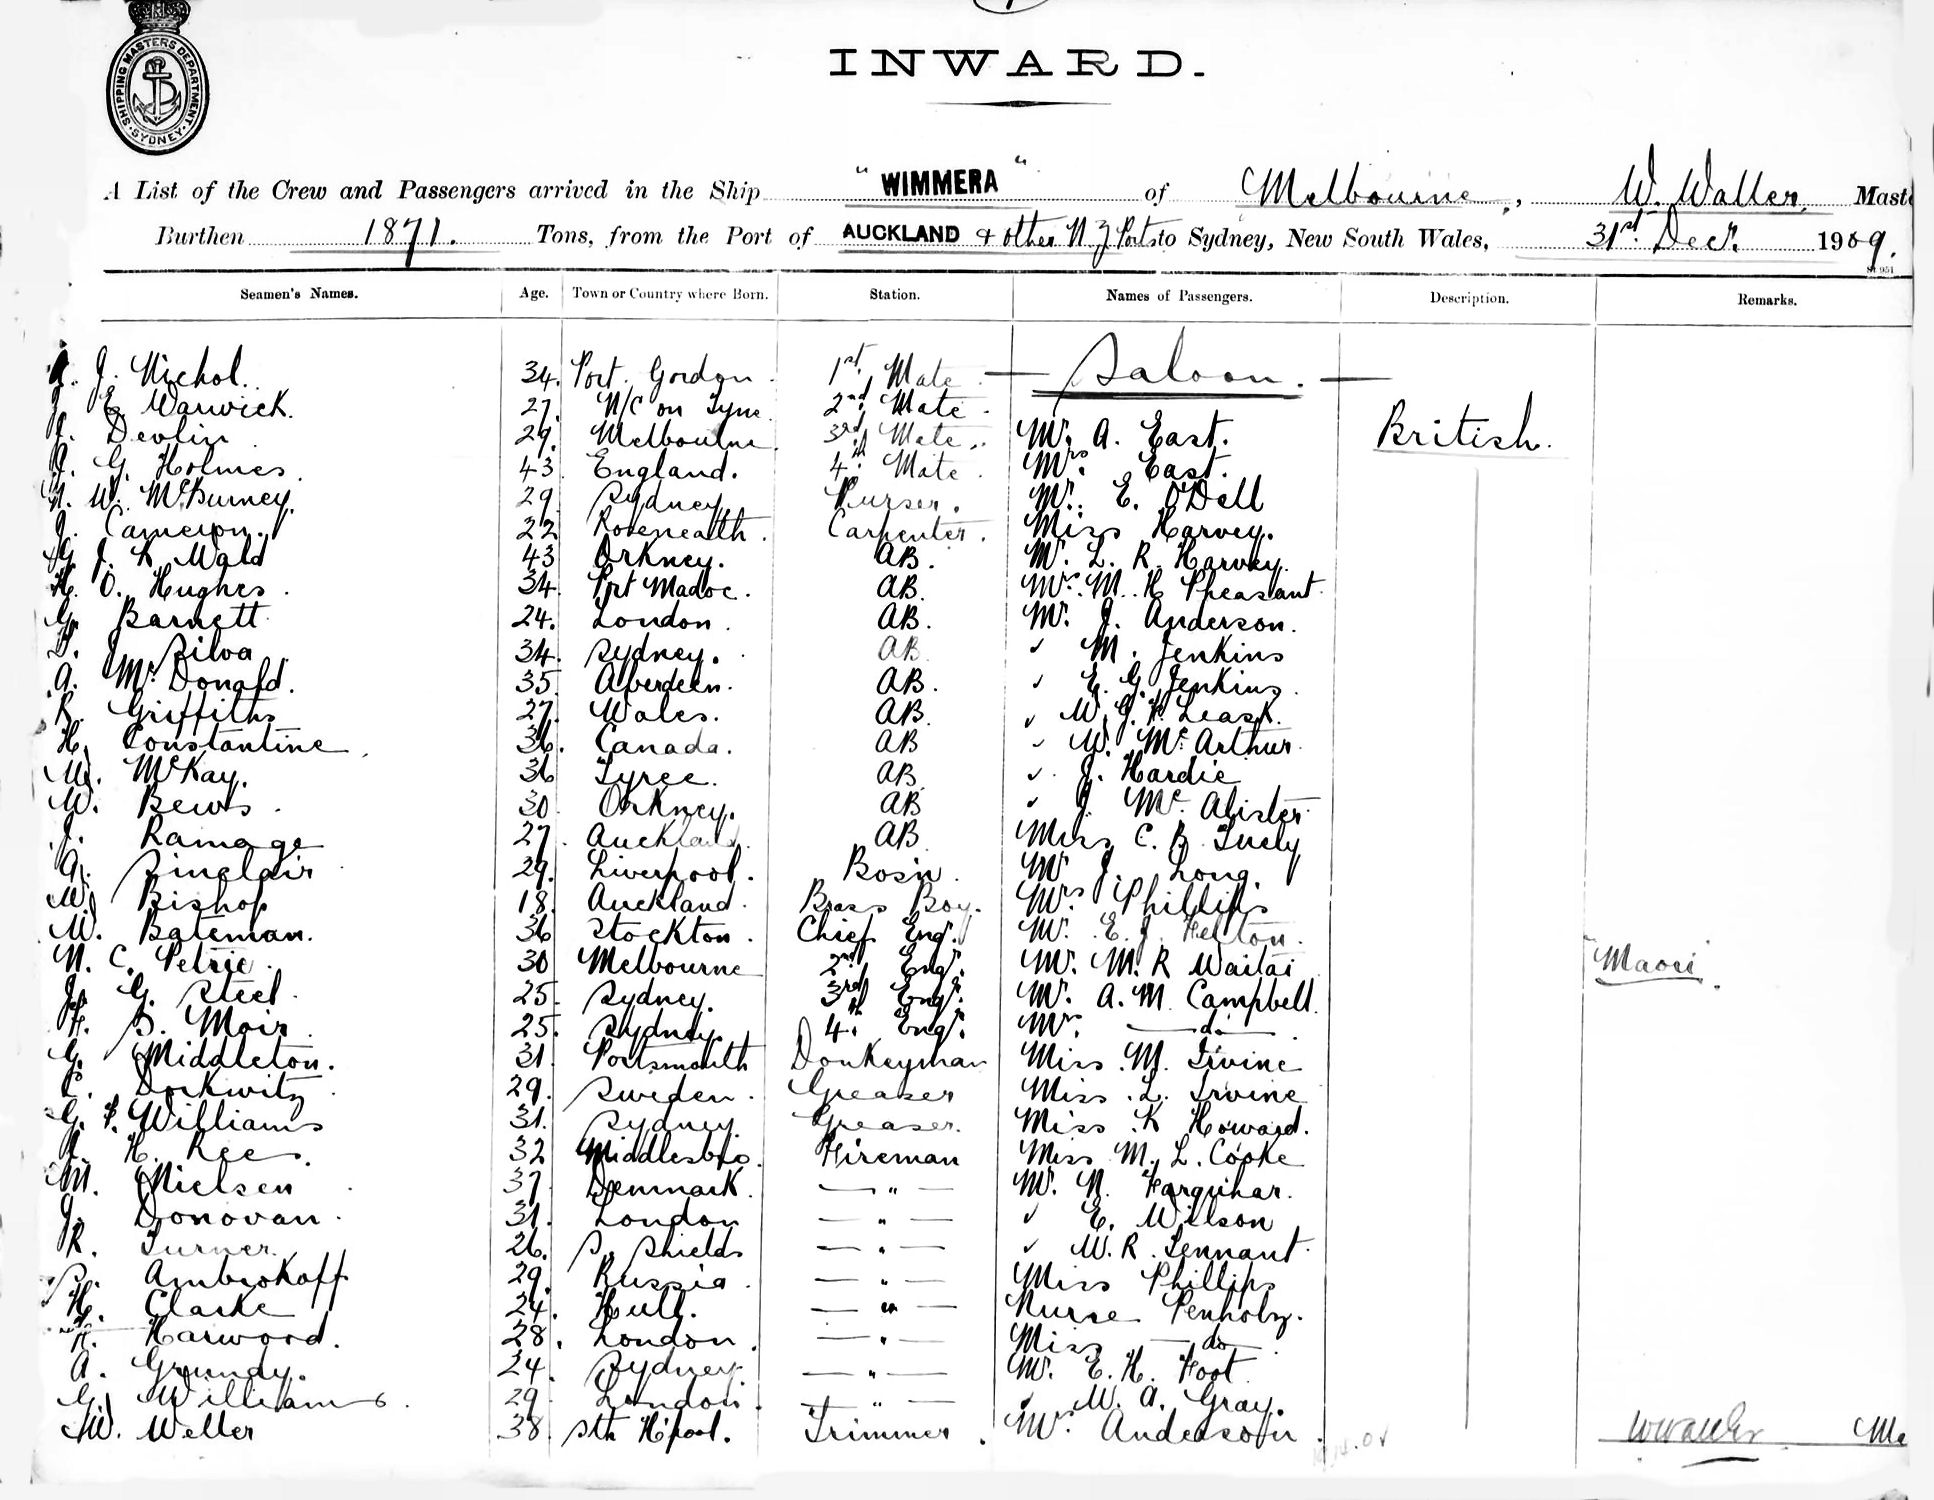 SHIPPING MASTERS DEPARTMENT · SYDNEY ·
INWARD.
A List of the Crew and Passengers arrived in the Ship "WIMMERA" of Melbourne, W. Waller, Mast
Burthen 1871. Tons, from the Port of AUCKLAND & other N Z Ports to Sydney, New South Wales, 31st Decr. 1909.
Seamen's Names. Age. Town or Country where Born. Station. Names of Passengers. Description. Remarks.
J. Nichol. 34. Port Gordon 1st Mate — Saloon. —
E Warwick. 27. N/C on Tyne 2nd Mate
J. Devlin 29. Melbourne 3rd Mate Mr. A. East. British.
G. Holmes 43 England. 4th Mate Mrs. East.
W. McBurney. 29 Sydney Purser. Mr. E. O'Dell
J. Cameron. 22 Roseneath Carpenter. Miss Harvey.
J. K Wald 43 Orkney. AB. Mr. L. R. Harvey.
H. O. Hughes 34. Port Madoc. AB. Mr. M. H Pheasant
G. Barnett 24. London. AB. Mr. J. Anderson.
J. Silva 34. Sydney. AB M. Jenkins
A. McDonald. 35. Aberdeen. AB. E. G. Jenkins.
R. Griffiths 27. Wales. AB. W. G. H. Leask.
H. Constantine 36. Canada. AB W. McArthur
M. McKay. 36 Tyree. AB J. Hardie
W. Bews 30 Orkney. AB J. McAlister
J. Ramage 27. Auckland AB Miss C. B
A. Sinclair 29. Liverpool. Bosn. Mr J. Long.
W. Bishop 18. Auckland. Brass Boy. Mrs Phillips
W. Bateman. 36 Stockton. Chief Engr. Mr. E. J.
N. C. Petrie 30 Melbourne 2nd Engr. Mr. M. R Waitai Maori.
J. G. Steel 25. Sydney. 3rd Engr. Mr. A. M Campbell
H. S. Moir 25. Sydney. 4th Engr. — do —
G. Middleton. 31. Portsmouth Donkeyman Miss M. Irvine
Dorkwitz 29. Sweden. Greaser Miss L. Irvine
G. F. Williams 31. Sydney. Greaser. Miss K Howard.
H. Rees. 32 Middlesbro. Fireman Miss M. L. Cooke
M. Nielsen 37 Denmark. — " — Mr. N. Farquhar.
J. Donovan 31. London — " — E. Willson
R. Turner. 26. S. Shields — " — W. R. Tennant
Ambrokoff 29. Russia — " — Miss Phillips
H. Clarke 24. Hull. — " — Nurse Penholz.
H. Harwood. 28. London. — " — Miss — do —
A. Grundy. 24. Sydney. — " — Mr. E. H. Foot
G. Williams 29 London. — " — W. A. Gray.
W. Weller 38. Sth H'pool. Trimmer. Anderson W Waller Ma